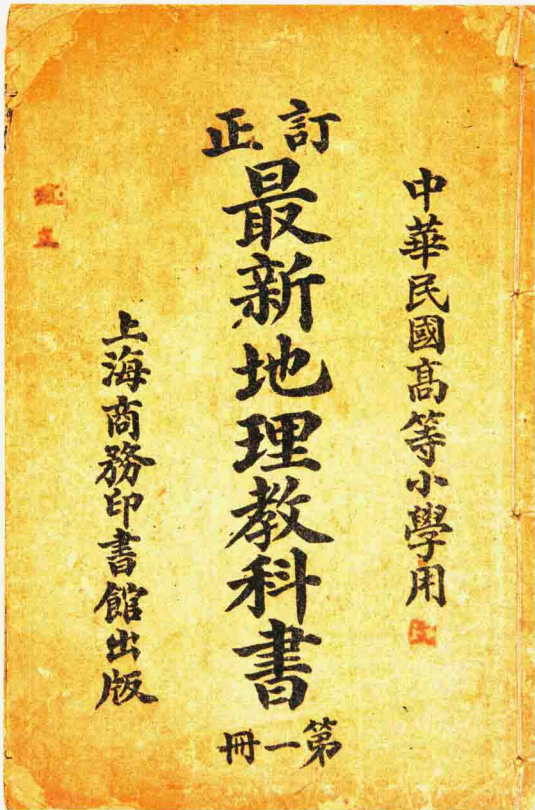 中華民國高等小學用
訂正
最新地理教科書
第一冊
上海商務印書館出版